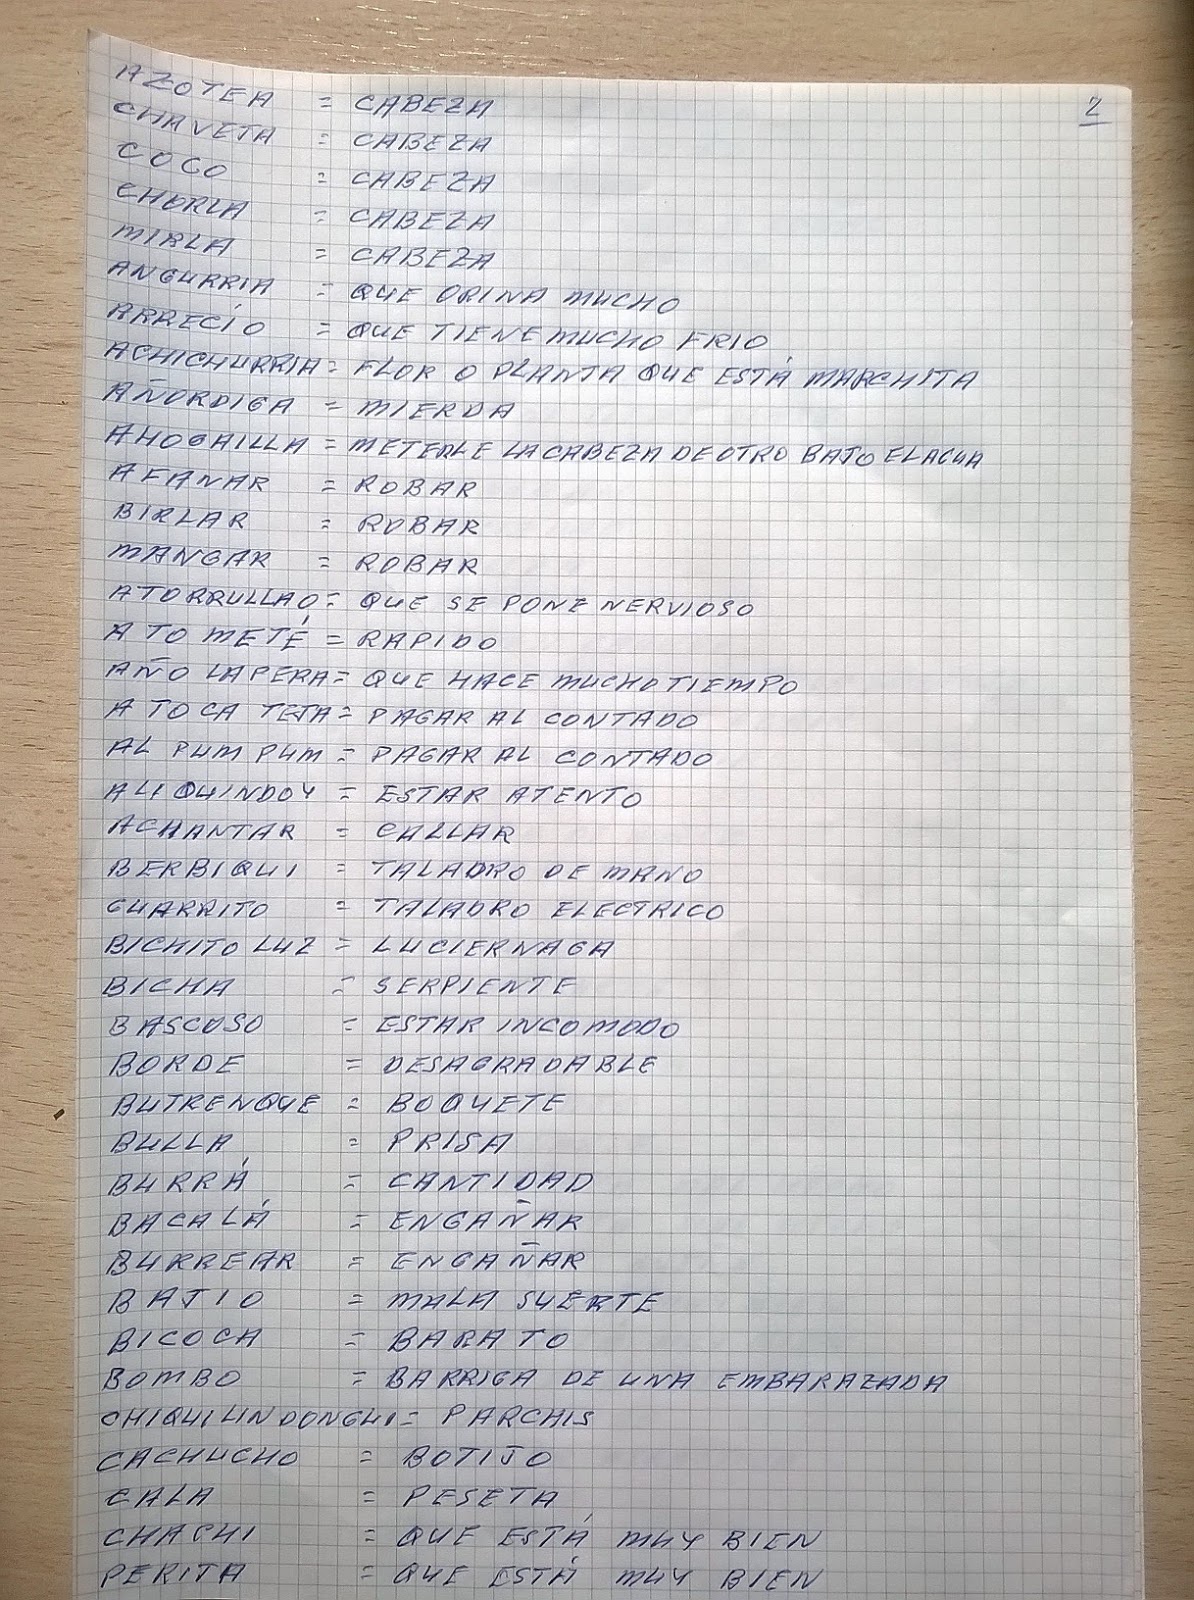 2
AZOTEA = CABEZA
CHAVETA = CABEZA
COCO = CABEZA
CHORLA = CABEZA
MIRLA = CABEZA
ANGURRIA = QUE ORINA MUCHO
ARRECÍO = QUE TIENE MUCHO FRIO
ACHICHURRIA = FLOR O PLANTA QUE ESTÁ MARCHITA
AÑORDIGA = MIERDA
AHOGAILLA = METERLE LA CABEZA DE OTRO BAJO EL AGUA
AFANAR = ROBAR
BIRLAR = ROBAR
MANGAR = ROBAR
ATORRULLAO = QUE SE PONE NERVIOSO
A TO METÉ = RAPIDO
AÑO LA PERA = QUE HACE MUCHO TIEMPO
A TOCA TEJA = PAGAR AL CONTADO
AL PUM PUM = PAGAR AL CONTADO
ALIQUINDOY = ESTAR ATENTO
ACHANTAR = CALLAR
BERBIQUI = TALADRO DE MANO
GUARRITO = TALADRO ELECTRICO
BICHITO LUZ = LUCIERNAGA
BICHA = SERPIENTE
BASCOSO = ESTAR INCOMODO
BORDE = DESAGRADABLE
BUTRENQUE = BOQUETE
BULLA = PRISA
BURRÁ = CANTIDAD
BACALÁ = ENGAÑAR
BURREAR = ENGAÑAR
BAJIO = MALA SUERTE
BICOCA = BARATO
BOMBO = BARRIGA DE UNA EMBARAZADA
CHIQUILINDONGUI = PARCHIS
CACHUCHO = BOTIJO
CALA = PESETA
CHACHI = QUE ESTÁ MUY BIEN
PERITA = QUE ESTÁ MUY BIEN